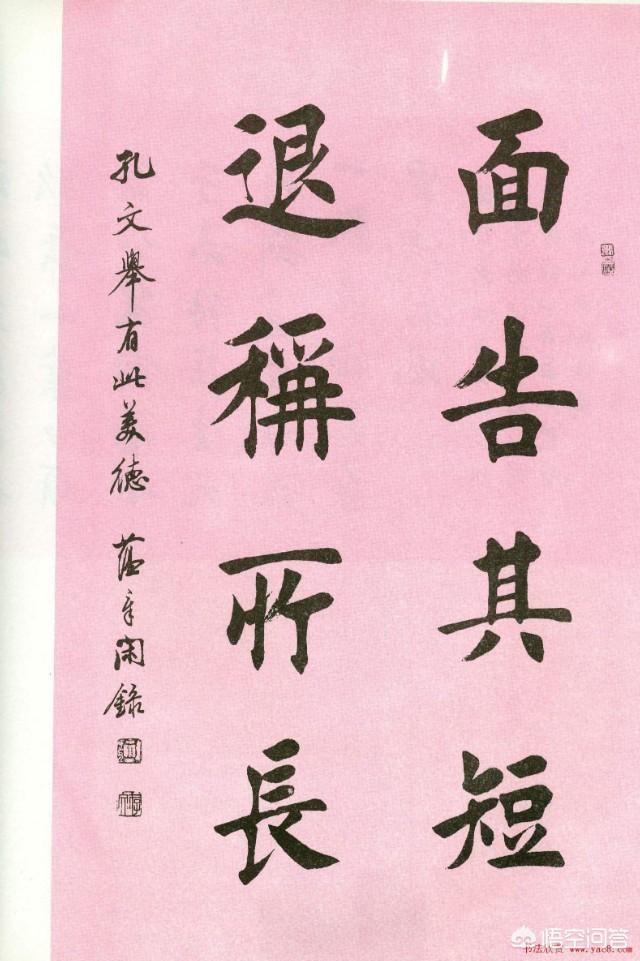 面告其短
退稱所長
孔文舉有此美德 蘊章閑錄
悟空问答
书法欣赏 www.yac8.com